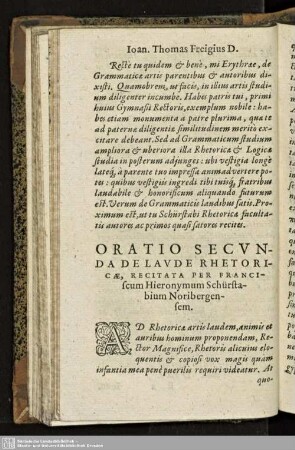 Ioan. Thomas Freigius D.
Rectè tu quidem & benè, mi Erythræe, de
Grammaticæ artis parentibus & autoribus di-
xisti. Quamobrem, ut facis, in illius artis studi-
um diligenter incumbe. Habes patris tui, primi
huius Gymnasii Rectoris, exemplum nobile: ha-
bes etiam monumenta à patre plurima, quæ te
ad paternæ diligentiæ similitudinem meritò ex-
citare debeant. Sed ad Grammaticum studium
ampliora & uberiora illa Rhetorica & Logicæ
studia in posterum adjunges: ubi vestigia longè
latéq́, à parente tuo impressa animadvertere po-
tes: quibus vestigiis ingredi tibi tuisq́, fratribus
laudabile & honorificum aliquando futurum
est. Verum de Grammaticis laudibus satis. Pro-
ximum est, ut tu Schürstabi Rhetoricæ faculta-
tis autores ac primos quasi satores recites.
ORATIO SECVN-
DA DE LAVDE RHETORI-
CÆ, RECITATA PER FRANCI-
scum Hieronymum Schürsta-
bium Noribergen-
sem.
AD Rhetoricæ artis laudem, animis et
auribus hominum proponendam, Re-
ctor Magnifice, Rhetoris alicuius elo-
quentis & copiosi vox magis quam
infantia mea penè puerilis requiri videatur. At
quo-